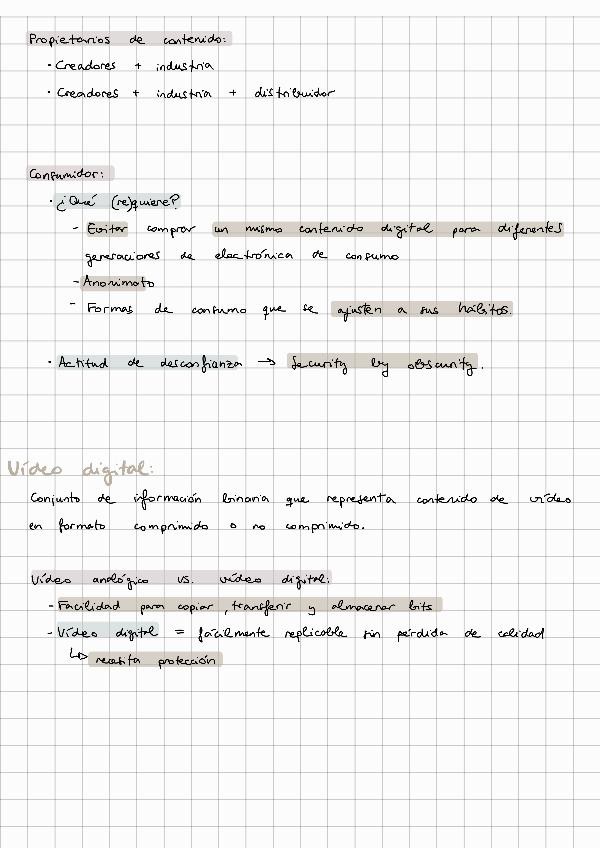 Propietarios de contenido:
· Creadores + industria
· Creadores + industria + distribuidor
Consumidor:
· ¿Qué (re)quiere?
- Evitar comprar un mismo contenido digital para diferentes
generaciones de electrónica de consumo
- Anonimato
- Formas de consumo que se ajusten a sus hábitos.
· Actitud de desconfianza → Security by obscurity.
Vídeo digital:
Conjunto de información binaria que representa contenido de vídeo
en formato comprimido o no comprimido.
Vídeo analógico vs. vídeo digital:
- Facilidad para copiar, transferir y almacenar bits
- Vídeo digital = fácilmente replicable sin pérdida de calidad
↳ necesita protección